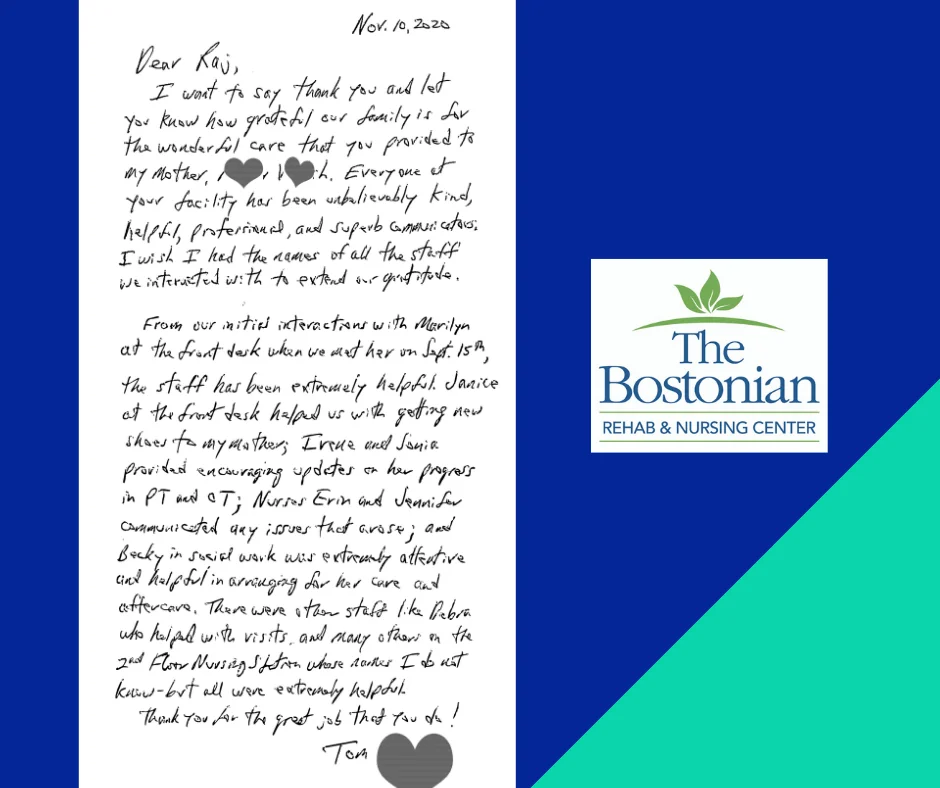 Nov. 10, 2020
Dear Raj,
I want to say thank you and let
you know how grateful our family is for
the wonderful care that you provided to
my mother, Everyone at
your facility has been unbelievably kind,
helpful, professional, and superb communicators.
I wish I had the names of all the staff
we interacted with to extend our gratitude.
From our initial interactions with Marilyn
at the front desk when we met her on Sept. 15th,
the staff has been extremely helpful. Janice
at the front desk helped us with getting new
shoes to my mother; Irene and Sonia
provided encouraging updates on her progress
in PT and OT; Nurses Erin and Jennifer
communicated any issues that arose; and
Becky in social work was extremely attentive
and helpful in arranging for her care and
aftercare. There were other staff like Debra
who helped with visits, and many others on the
2nd Floor Nursing Station whose names I do not
know-but all were extremely helpful.
Thank you for the great job that you do!
Tom
The
Bostonian
REHAB & NURSING CENTER